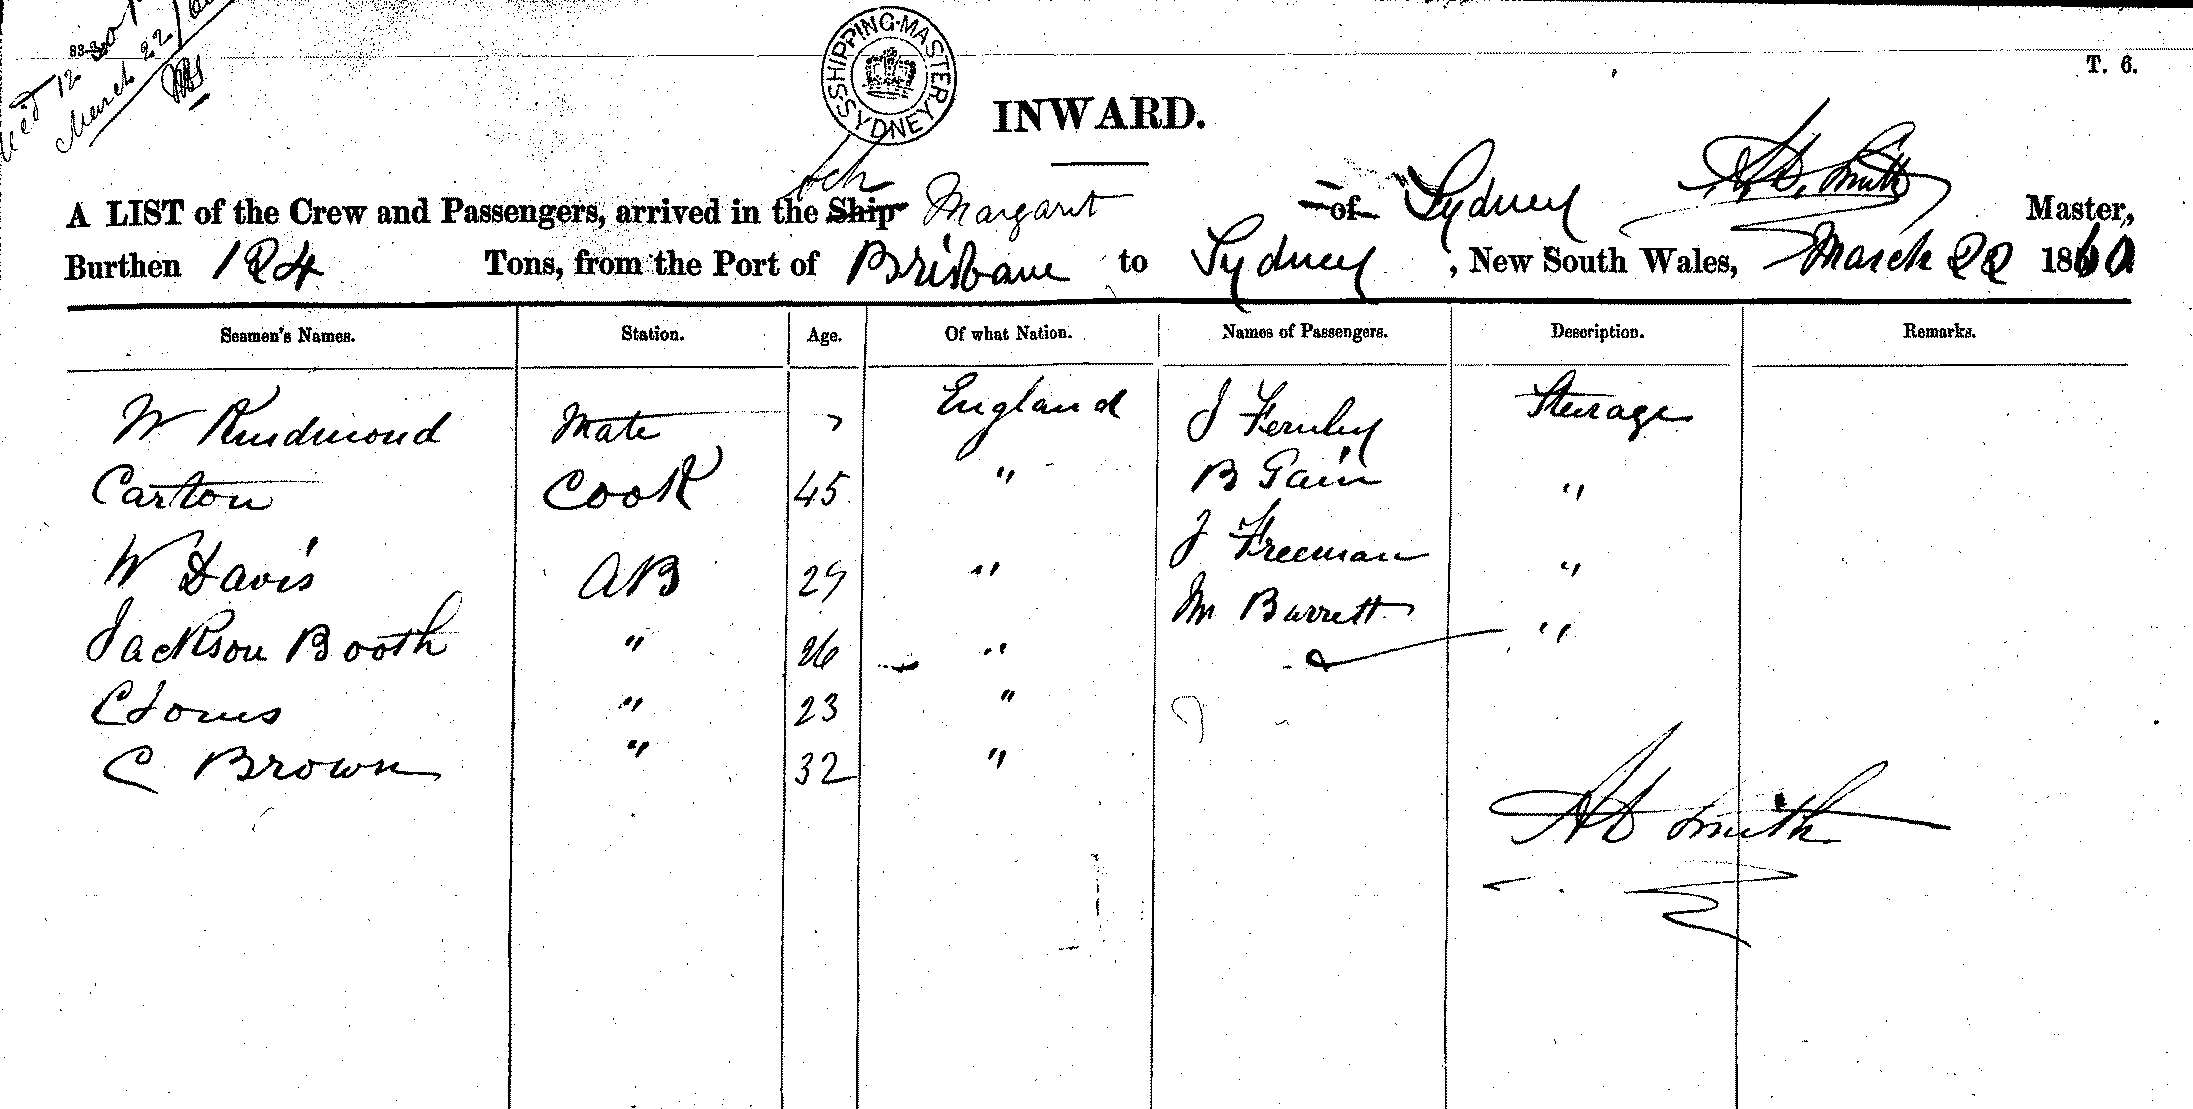 83-3
March 22/60
SHIPPING-MASTER SYDNEY
T. 6.
INWARD.
A LIST of the Crew and Passengers, arrived in the Ship Sch Margaret of Sydney A. D. Smith Master,
Burthen 124 Tons, from the Port of Brisbane to Sydney, New South Wales, March 22 1860
Seamen's Names. Station. Age. Of what Nation. Names of Passengers. Description. Remarks.
W Mate England J Fernley Steerage
Carton Cook 45 " B Gain "
W Davis AB 29 " J Freeman "
Jackson Booth " 26 " M Barrett "
C Jones " 23 "
C Brown " 32 "
A D Smith